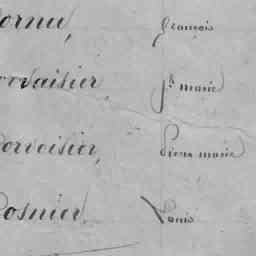 ornu, françois
orvaisier, Jh marie
orvoisier, Pierre marie
osnier. Louis